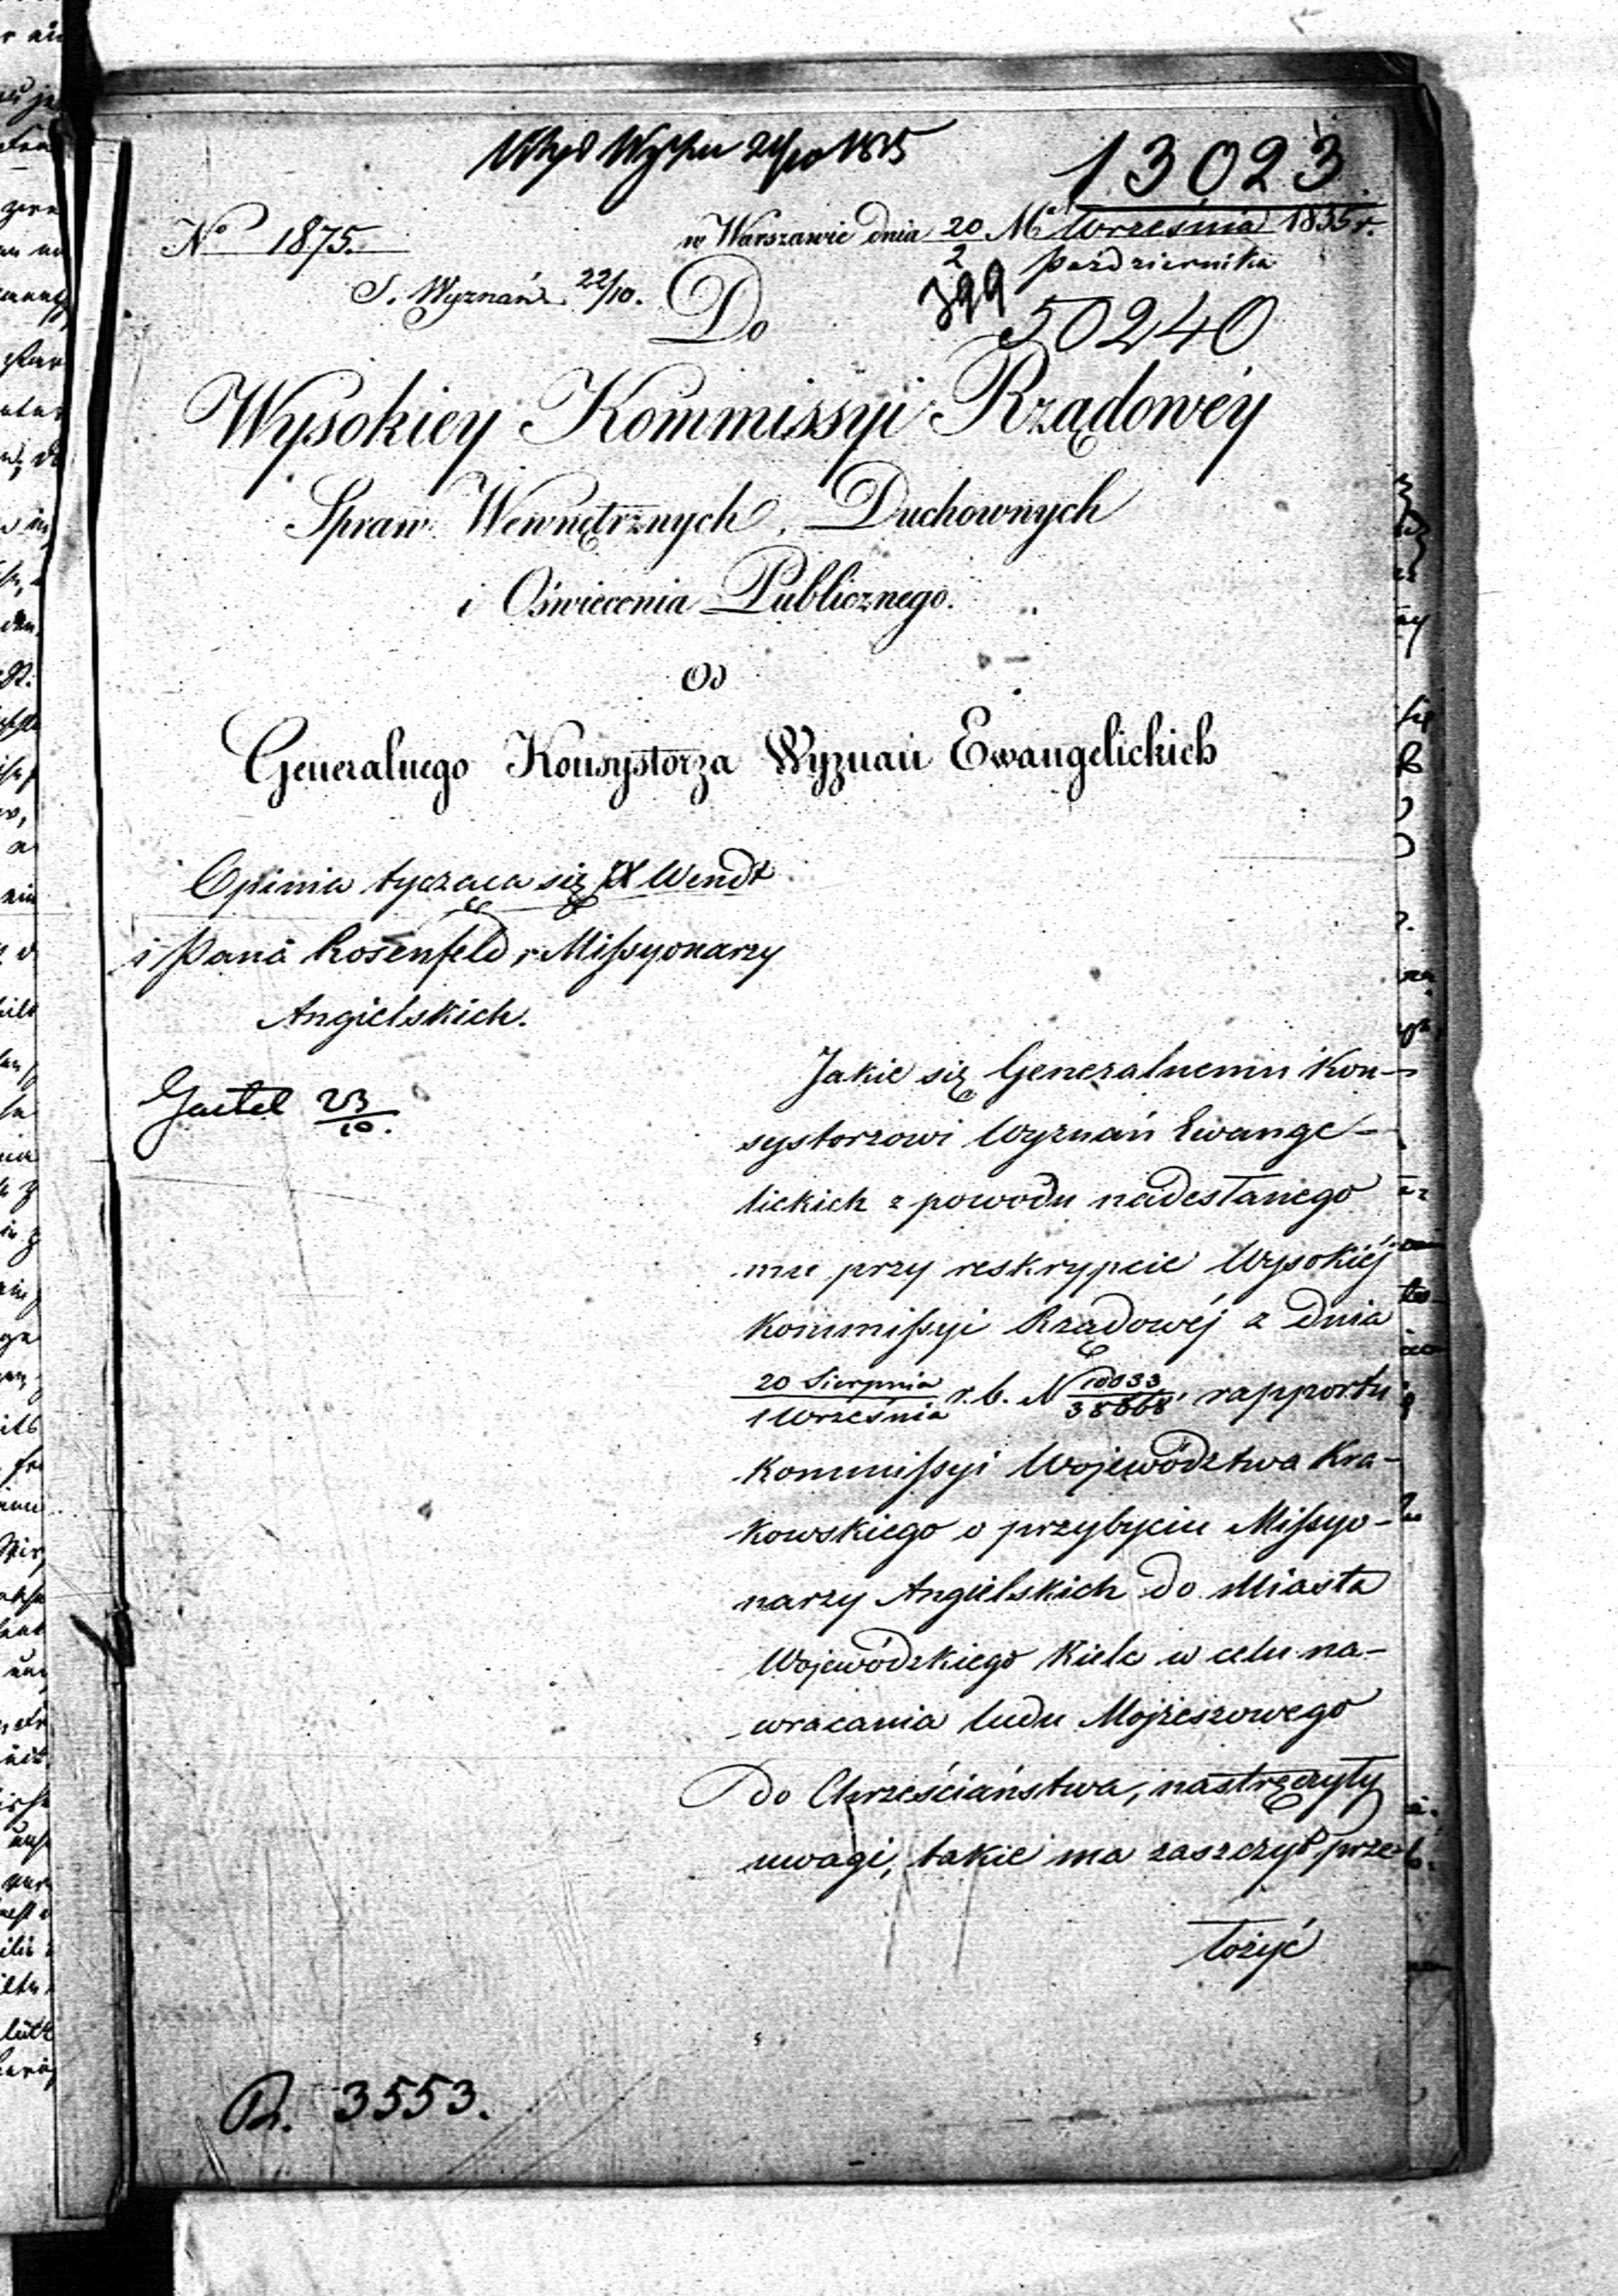 13023
No 1875.
w Warszawie dnia 20 Ma Września 1835 r.
2 Października
S. Wyznań 22/10.
Do
399
50240
Wysokiey Kommissyi Rządowéy
Spraw Wewnętrznych, Duchownych
i Oświecenia Publicznego.
Od
Generalnego Konsystorza Wyznań Ewangelickich
Opinia tycząca się XX Wendt
i Pana Rosenfeld, Missyonarzy
Angielskich.
23/10.
Jakie się Generalnemu Kon-
systorzowi Wyznań Ewange-
lickich z powodu nadesłanego
mu przy reskrypcie Wysokiéj
Kommissyi Rządowéj z dnia
20 Sierpnia / 1 Września r. b. N 10033/38668 rapportu
Kommissyi Województwa Kra-
kowskiego o przybyciu Missyo-
narzy Angielskich do Miasta
Wojewódzkiego Kielc w celu na-
wracania ludu Mojżeszowego
do Chrześciaństwa, nastręczyły
uwagi, takie ma zaszczyt prze-
łożyć
R. 3553.